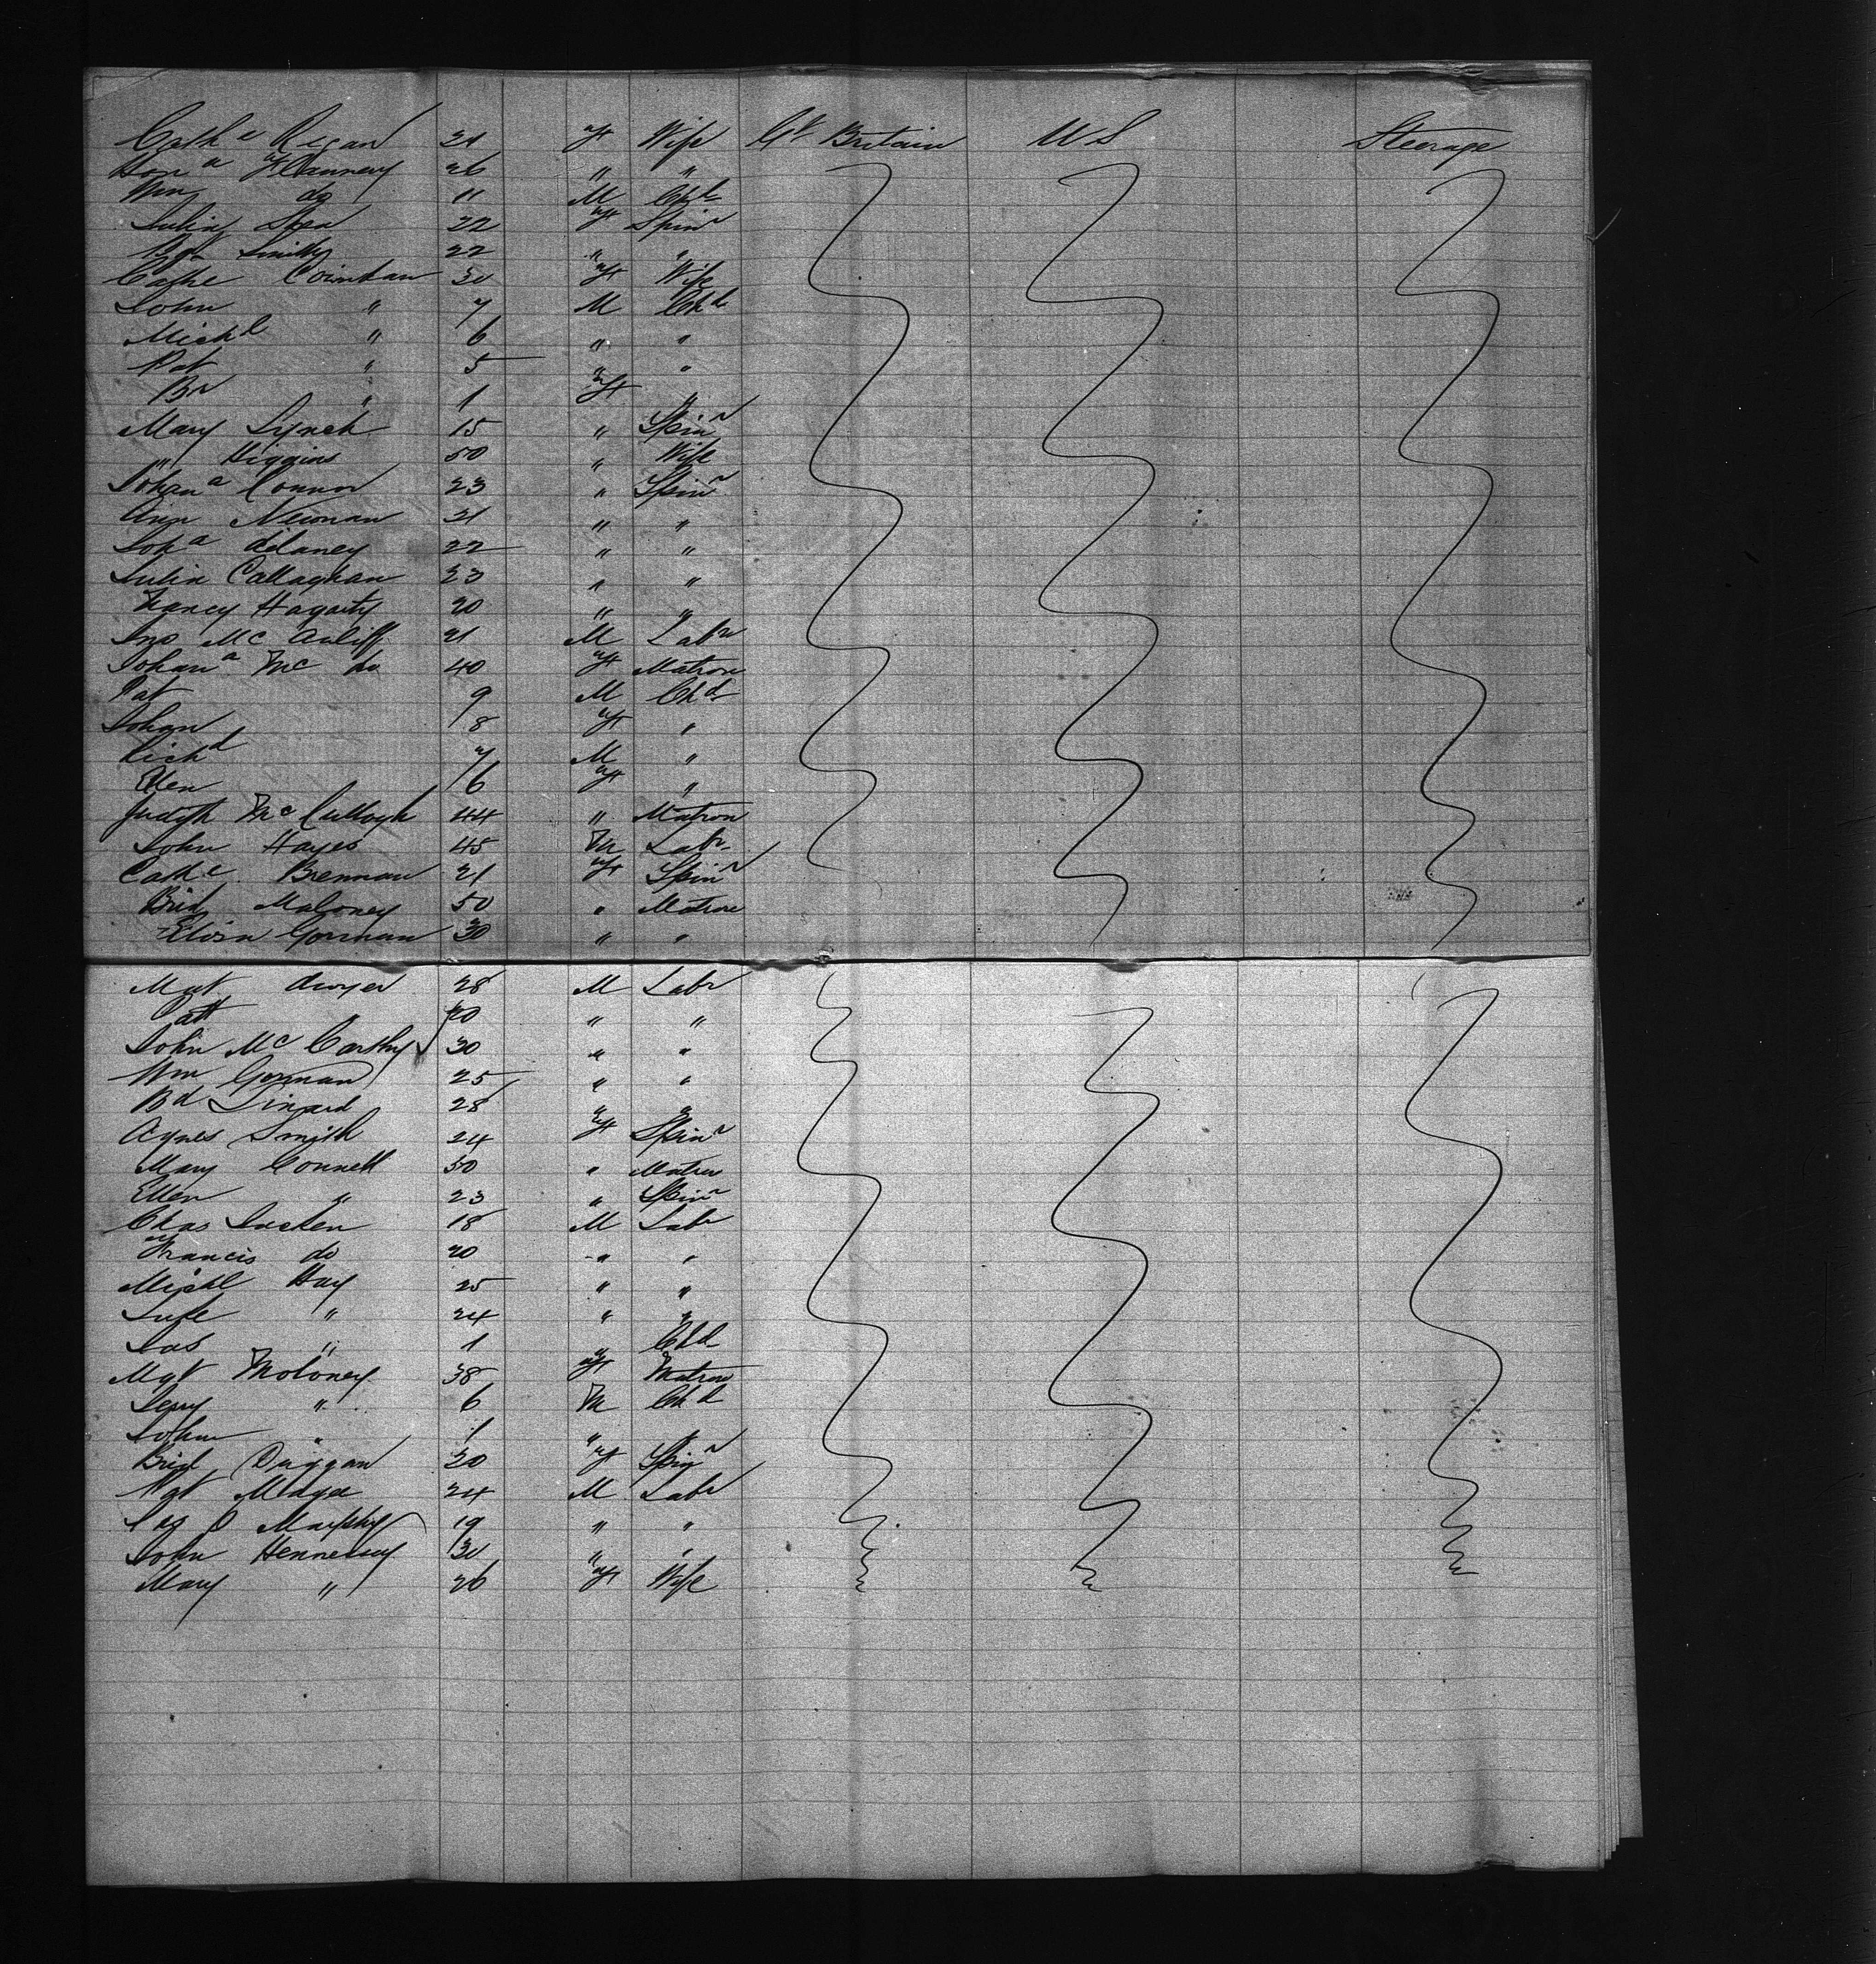 Cath e Regan 21 F Wife Gt Britain U S Steerage
Hon a Flannery 26 " "
Wm do 11 M Chd
Julia Shea 22 F Spinr
Bgt Smith 22 " "
Cathe 30 F Wife
John " 7 M Chd
Michl " 6 " "
Pat " 5 " "
Br " 1 F "
Mary Lynch 15 " Spinr
" Higgins 50 " Wife
Johan a Connor 23 " Spinr
Ann Newman 21 " "
Joh a delaney 22 " "
Julia Callaghan 23 " "
Nancy Hagarty 20 " "
Jno Mc Auliff 21 M Labr
Johan a Mc do 40 F Matron
Pat 9 M Chd
Johan 8 F "
Richd 7 M "
Ellen 6 F "
Judith Mc Cullogh 44 " Matron
John Hayes 45 M Labr
Cath e Brennan 21 F Spinr
Brid Maloney 50 " Matron
Eliza Gorman 30 " "
Mat dwyer 28 M Labr
Patt 20 " "
John Mc Carthy 30 " "
Wm Gorman 25 " "
Bd 28 " "
Agnes Smith 24 F Spinr
Mary Connell 50 " Matron
Ellen " 23 " Spinr
Chas 18 M Labr
Francis do 20 " "
Michl Hay 25 " "
24 " "
Jas " 1 " Chd
Mgt Moloney 38 F Matron
Jerry " 6 M Chd
John " 1 " "
Brid Duggan 20 F Spinr
24 M Labr
Jas O Murphy 19 " "
John Hennessy 30 " "
Mary " 26 F Wife